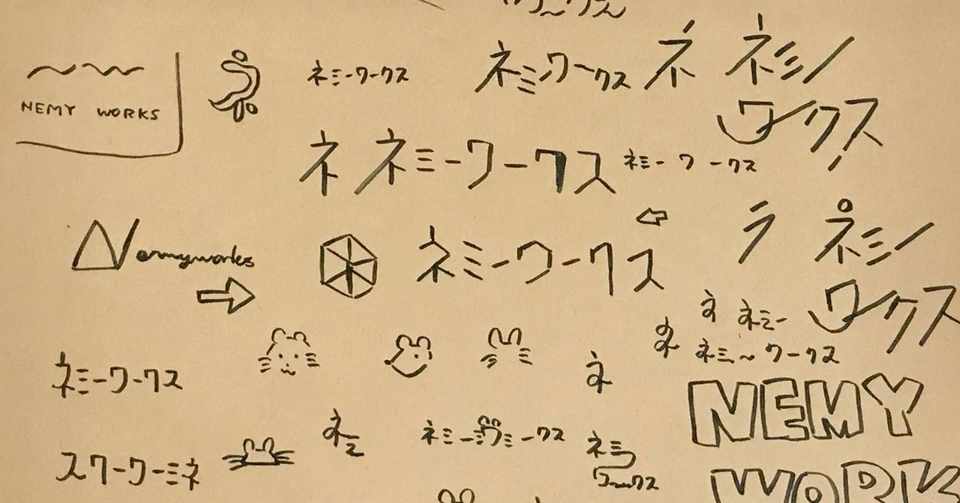 ネミーワークス
ネミワークス
ネ
ネミー
ワークス
NEMY WORKS
ネ ネミーワークス
ネミーワークス
Nemyworks
ネミーワークス
ラ
ネミー
ワークス
ネ ネミー
ネ ネミ〜ワークス
ネミーワークス
ネ
NEMY
WORK
ネミ
ネミーワミークス
ネミ
ワークス
スクーワーミネ